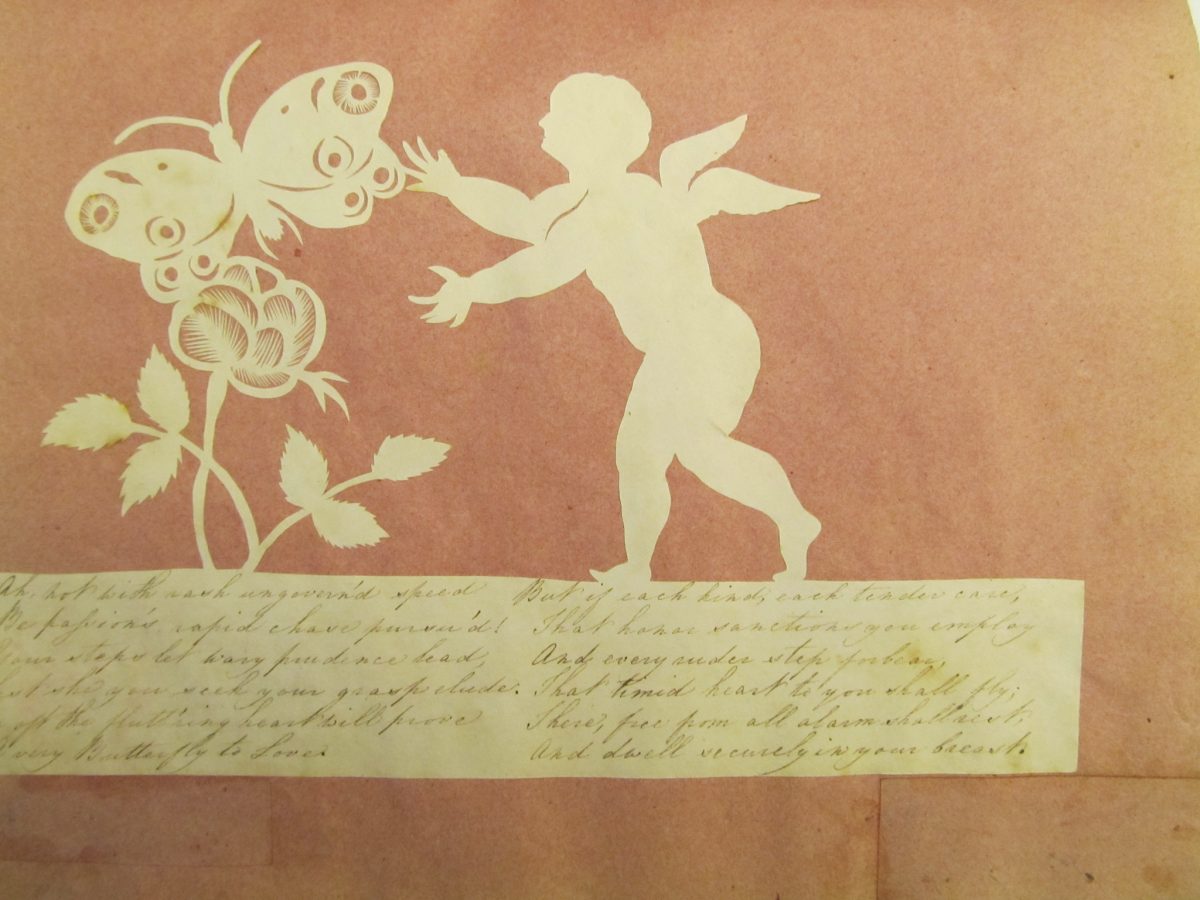 Ah, not with rash ungovern'd speed
Be paſsion's rapid chase pursu'd!
Your steps let wary prudence lead,
est she you seek your grasp elude.
oft the flutt'ring heart will prove
very Butterfly to Love.
But if each kind, each tender care,
That honor sanctions you employ
And every ruder step forbear,
That timid heart to you shall fly;
There, free from all alarm shall rest,
And dwell securely in your breast.